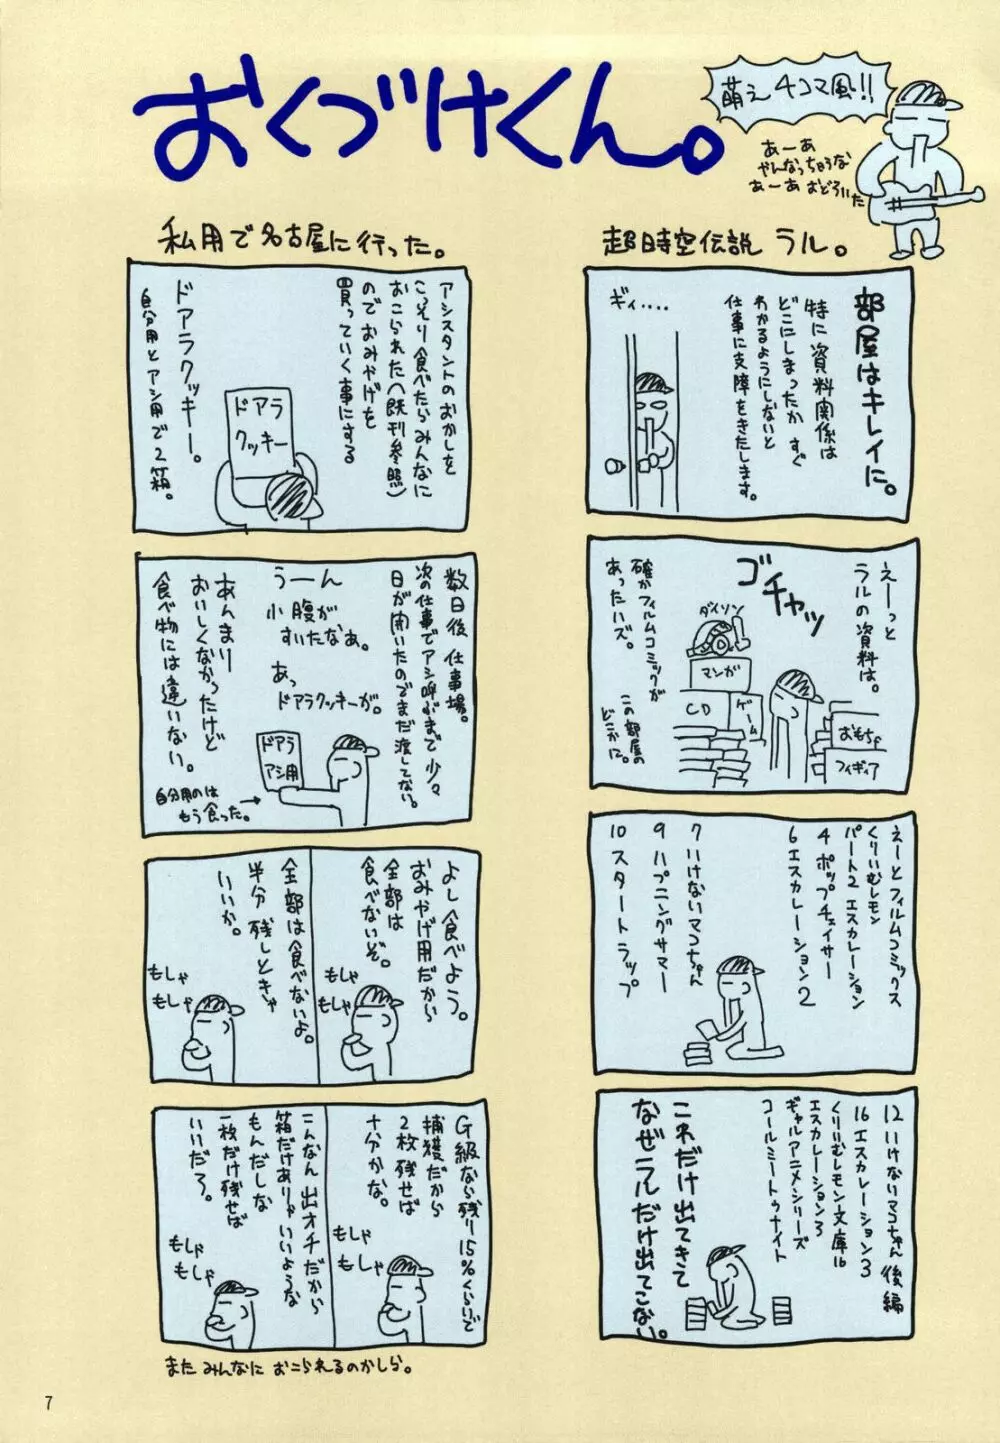 おくづけくん。
萌え4コマ風!!
あーあ
やんなっちゃうな
あーあ おどろいた
超時空伝説 ラル。
部屋はキレイに。
特に資料関係は
どこにしまったか すぐ
わかるようにしないと
仕事に支障をきたします。
ギィ....
えーっと
ラルの資料は。
ゴチャッ
ダイソン
マンガ
CD
ゲーム
おもちゃ
フィギィア
確かフィルムコミックが
あったハズ。
この部屋の
どこかに。
えーと フィルムコミックス
くりいむレモン
パート2 エスカレーション
4 ポップチェイサー
6 エスカレーション2
7 いけないマコちゃん
9 ハプニングサマー
10 スタートラップ
12 いけないマコちゃん 後編
16 エスカレーション3
くりいむレモン文庫16
エスカレーション3
ギャルアニメシリーズ
コールミートゥナイト
これだけ出てきて
なぜラルだけ出てこない。
私用で名古屋に行った。
アシスタントのおかしを
こっそり食べたらみんなに
おこられた(既刊参照)
ので おみやげを
買っていく事にする
ドアラ
クッキー
ドアラクッキー。
自分用とアシ用で2箱。
数日後 仕事場。
次の仕事でアシ呼ぶまで少々
日が開いたのでまだ渡してない。
うーん
小腹が
すいたなぁ。
あっ
ドアラクッキーが。
ドアラ
アシ用
あんまり
おいしくなかったけど
食べ物には違いない。
自分用のは
もう食った。→
よし食べよう。
おみやげ用だから
全部は
食べないぞ。
もしゃ
もしゃ
全部は食べないよ。
半分 残しときゃ
いいか。
もしゃ
もしゃ
G級なら残り15%くらいで
捕獲だから
2枚残せば
十分かな。
もしゃ
もしゃ
こんなん 出オチだから
箱だけありゃいいような
もんだしな
一枚だけ残せば
いいだろ。
もしゃ
もしゃ
また みんなに おこられるのかしら。
7